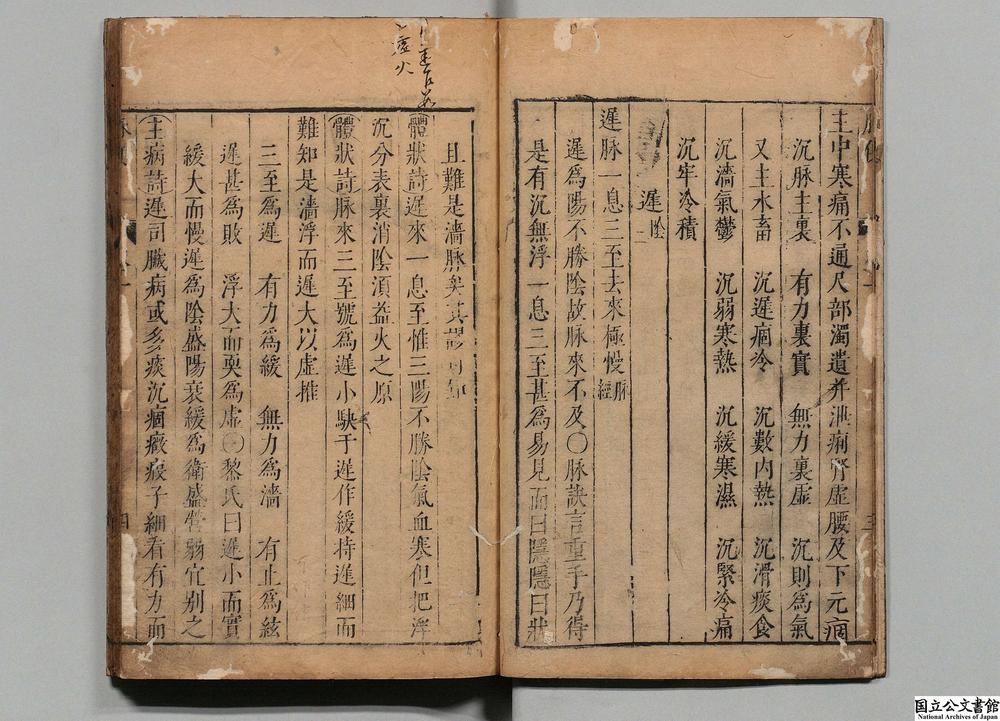 主中寒痛不通尺部濁遺并泄痢腎虛腰及下元痼
沉脉主裏 有力裏實 無力裏虛 沉則爲氣
又主水畜 沉遲痼冷 沉數內熱 沉滑痰食
沉濇氣鬱 沉弱寒熱 沉緩寒濕 沉緊冷痛
沉牢冷積
遲 陰
遲脉一息三至去來極慢 脉經
遲爲陽不勝陰故脉來不及〇脉訣言重手乃得
是有沉無浮一息三至甚爲易見而曰隱隱曰狀
且難是濇脉矣其謬可知
體狀詩遲來一息至惟三陽不勝陰氣血寒但把浮
沉分表裏消陰須益火之原
體狀詩脉來三至號爲遲小駃于遲作緩持遲細而
難知是濇浮而遲大以虛推
三至爲遲 有力爲緩 無力爲濇 有止爲絃
遲甚爲敗 浮大而耎爲虛〇黎氏曰遲小而實
緩大而慢遲爲陰盛陽衰緩爲衛盛營弱宜别之
主病詩遲司臟病或多痰沉痼癥瘕子細看有力而
虛火
三
四
国立公文書館
National Archives of Japan